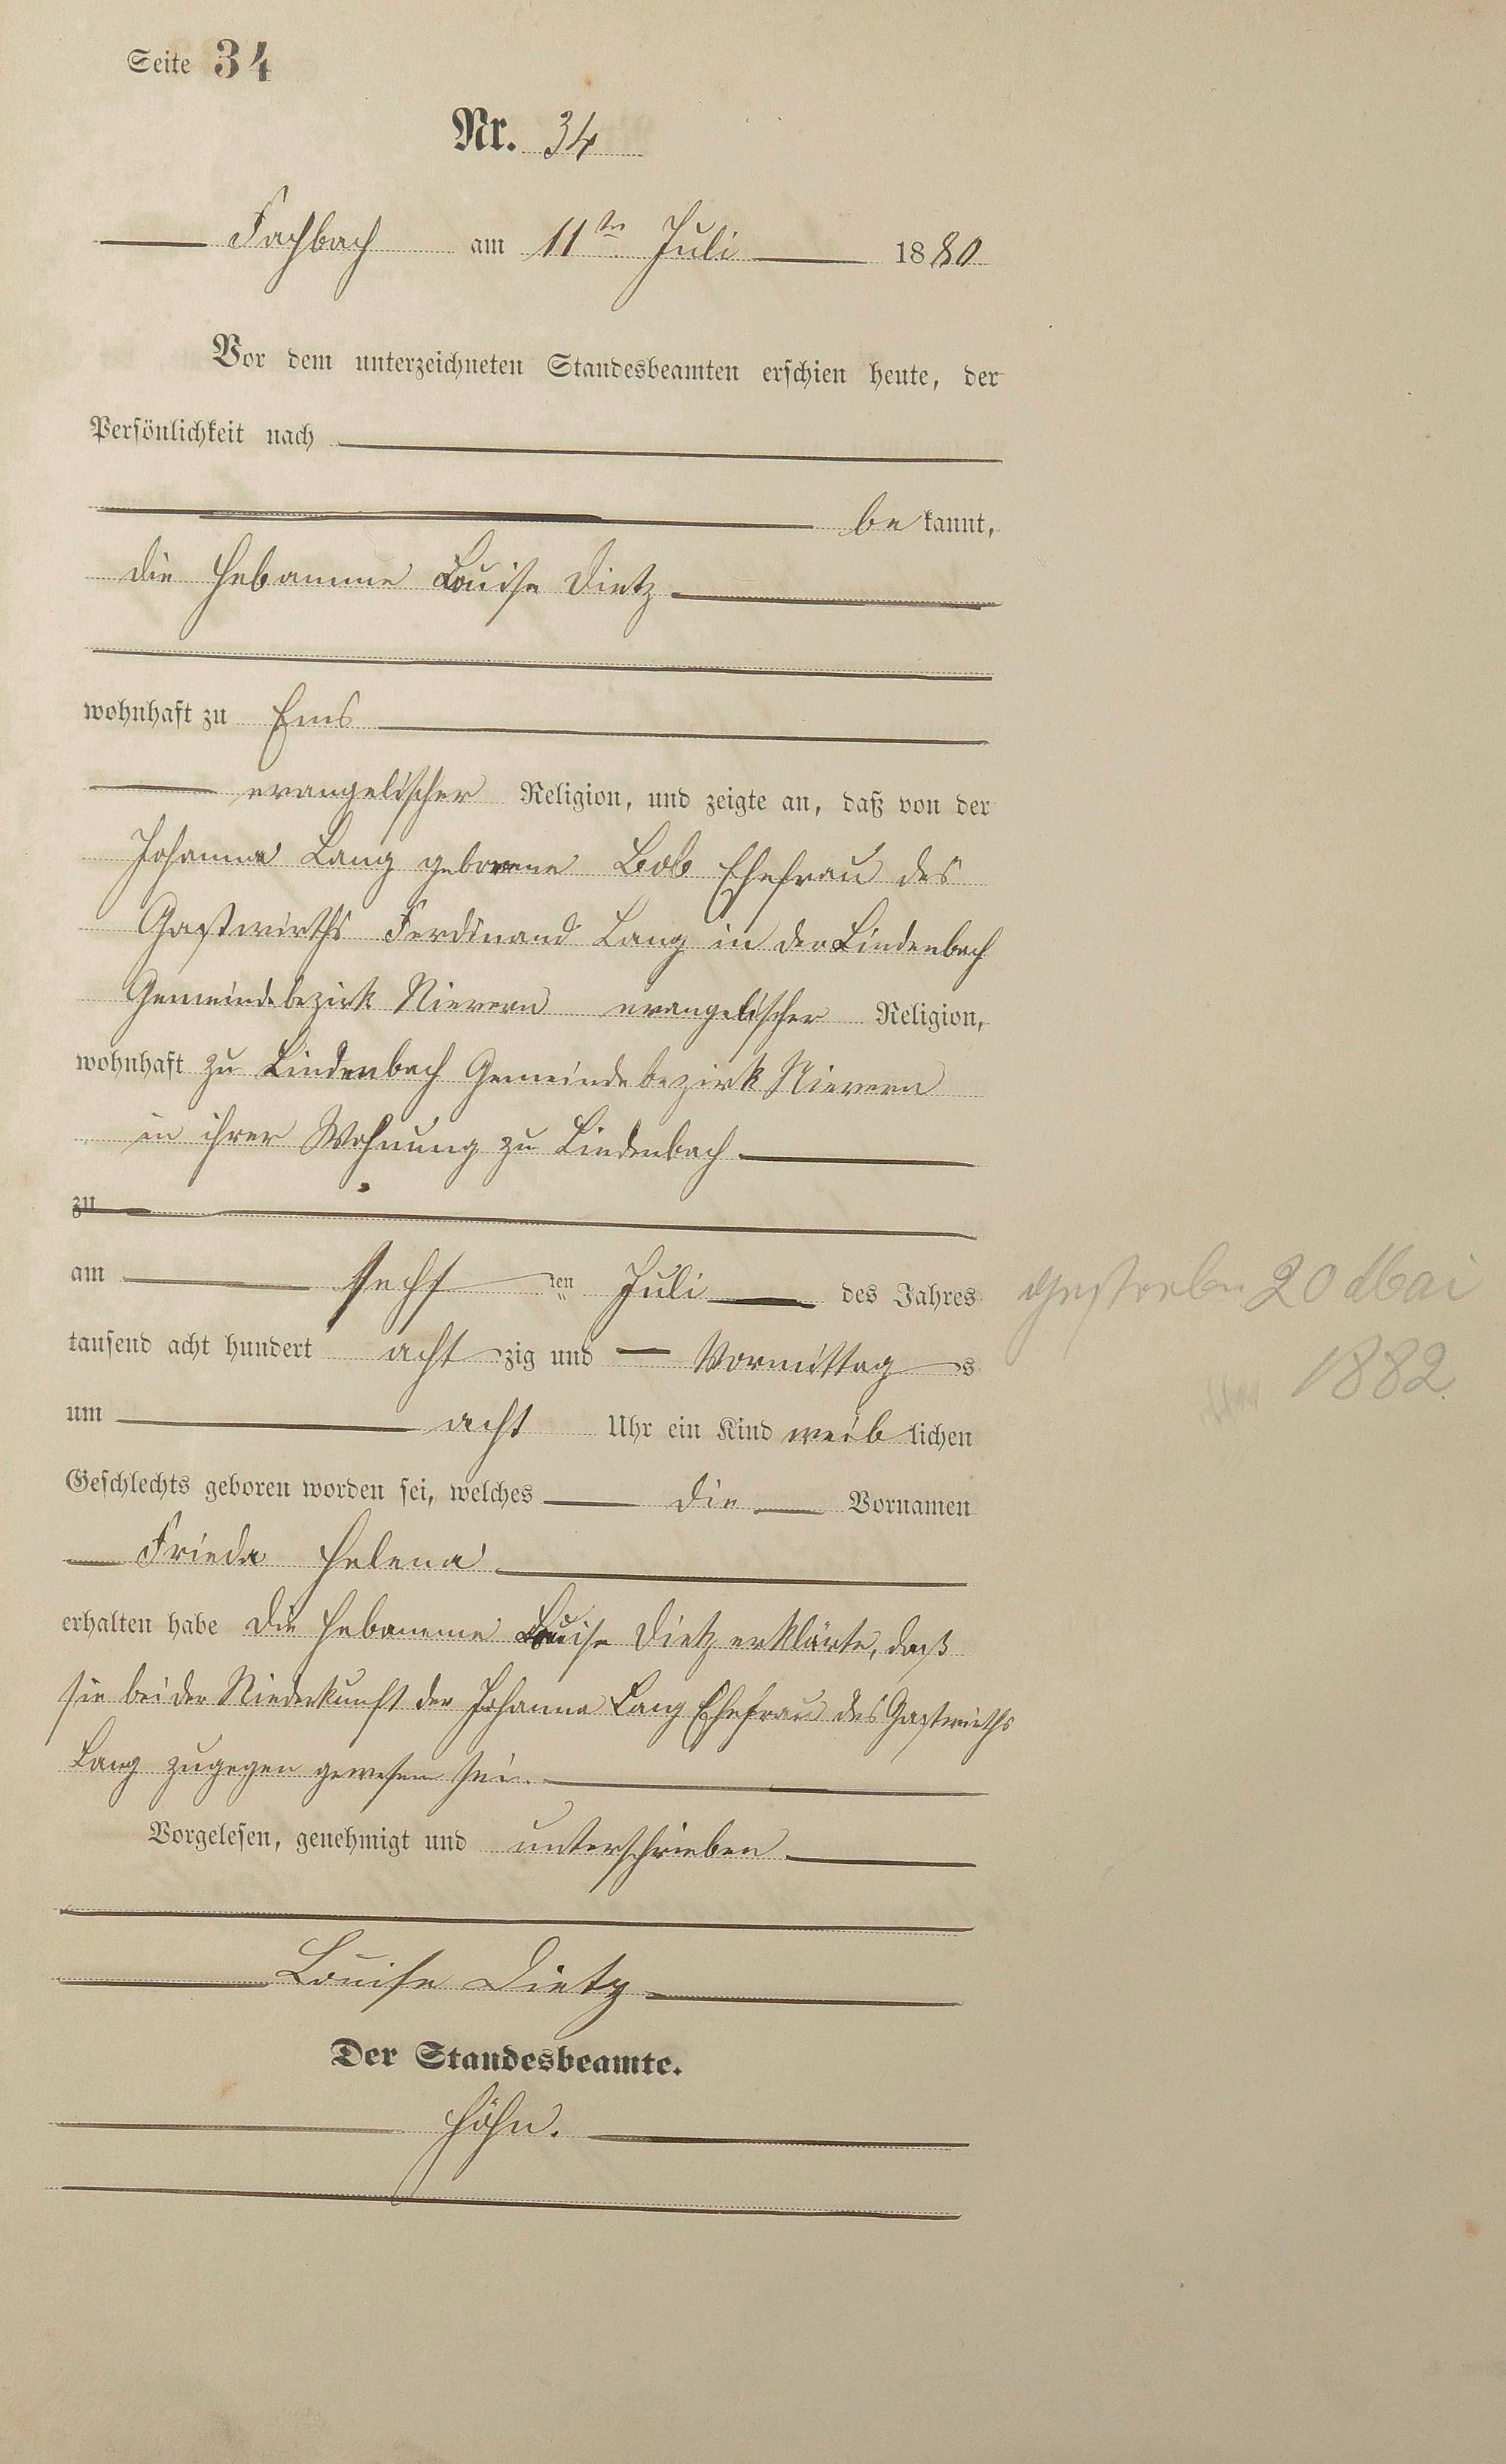 Seite 34
Nr. 34
Fachbach am 11ten Juli 1880
Vor dem unterzeichneten Standesbeamten erschien heute, der
Persönlichkeit nach
bekannt,
die Hebamme Louise Dietz
wohnhaft zu Ems
evangelischer Religion, und zeigte an, daß von der
Johanna Lang geborene Bob Ehefrau des
Gastwirths Ferdinand Lang in der Lindenbach
Gemeindebezirk Nievern evangelischer Religion,
wohnhaft zu Lindenbach Gemeindebezirk Nievern
in ihrer Wohnung zu Lindenbach
zu
am sechsten Juli des Jahres
tausend acht hundert achtzig und Vormittags
um acht Uhr ein Kind weiblichen
Geschlechts geboren worden sei, welches die Vornamen
Frieda Helena
erhalten habe Die Hebamme Louise Dietz erklärte, daß
sie bei der Niederkunft der Johanna Lang Ehefrau des Gastwirths
Lang zugegen gewesen sei.
Vorgelesen, genehmigt und unterschrieben
Louise Dietz
Der Standesbeamte.
Höhn.
gestorben 20 Mai
1882.